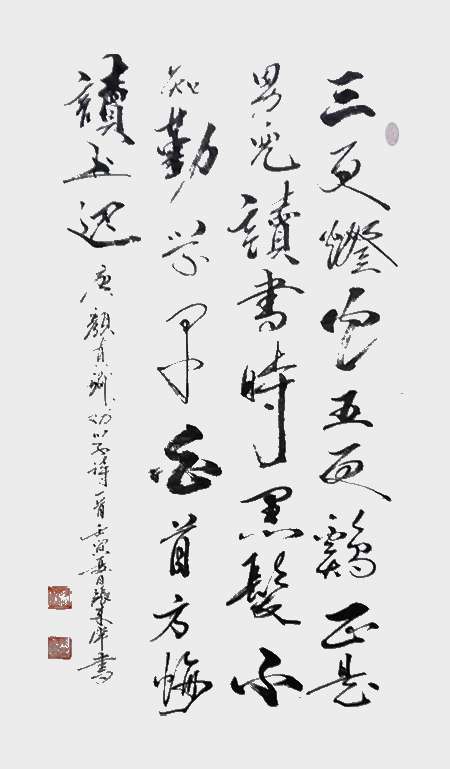 三更燈火五更鷄正是
男兒讀書時黑髮不
知勤学早白首方悔
讀书遲
唐顏真卿詩一首壬寅書